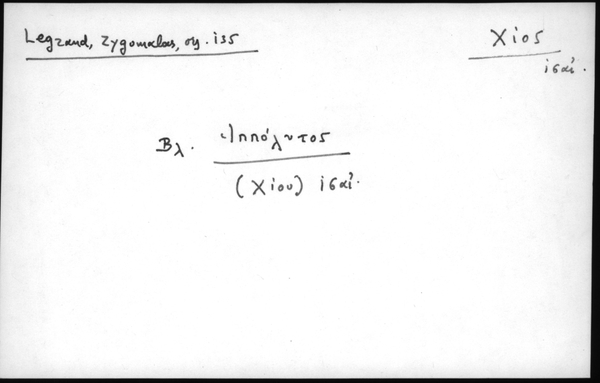 Legrand, Zygomalas, ση. 135
Χίος
ις αἰ.
Βλ. Ἱππόλυτος
(Χίου) ις αἰ.